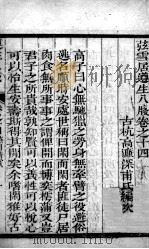 弦雪居遵生八牋卷之十四
古杭高濂深甫氏編次
高子曰心無馳獵之勞身無牽臂之役避俗
逃名順時安處世稱曰閒而閒者匪徒尸居
肉食無所事事之謂俾閒而博弈樗蒲又豈
君子之所貴哉孰知閒可以養性可以悅心
可以怡生安壽斯得其閒矣余嗜閒雅好古